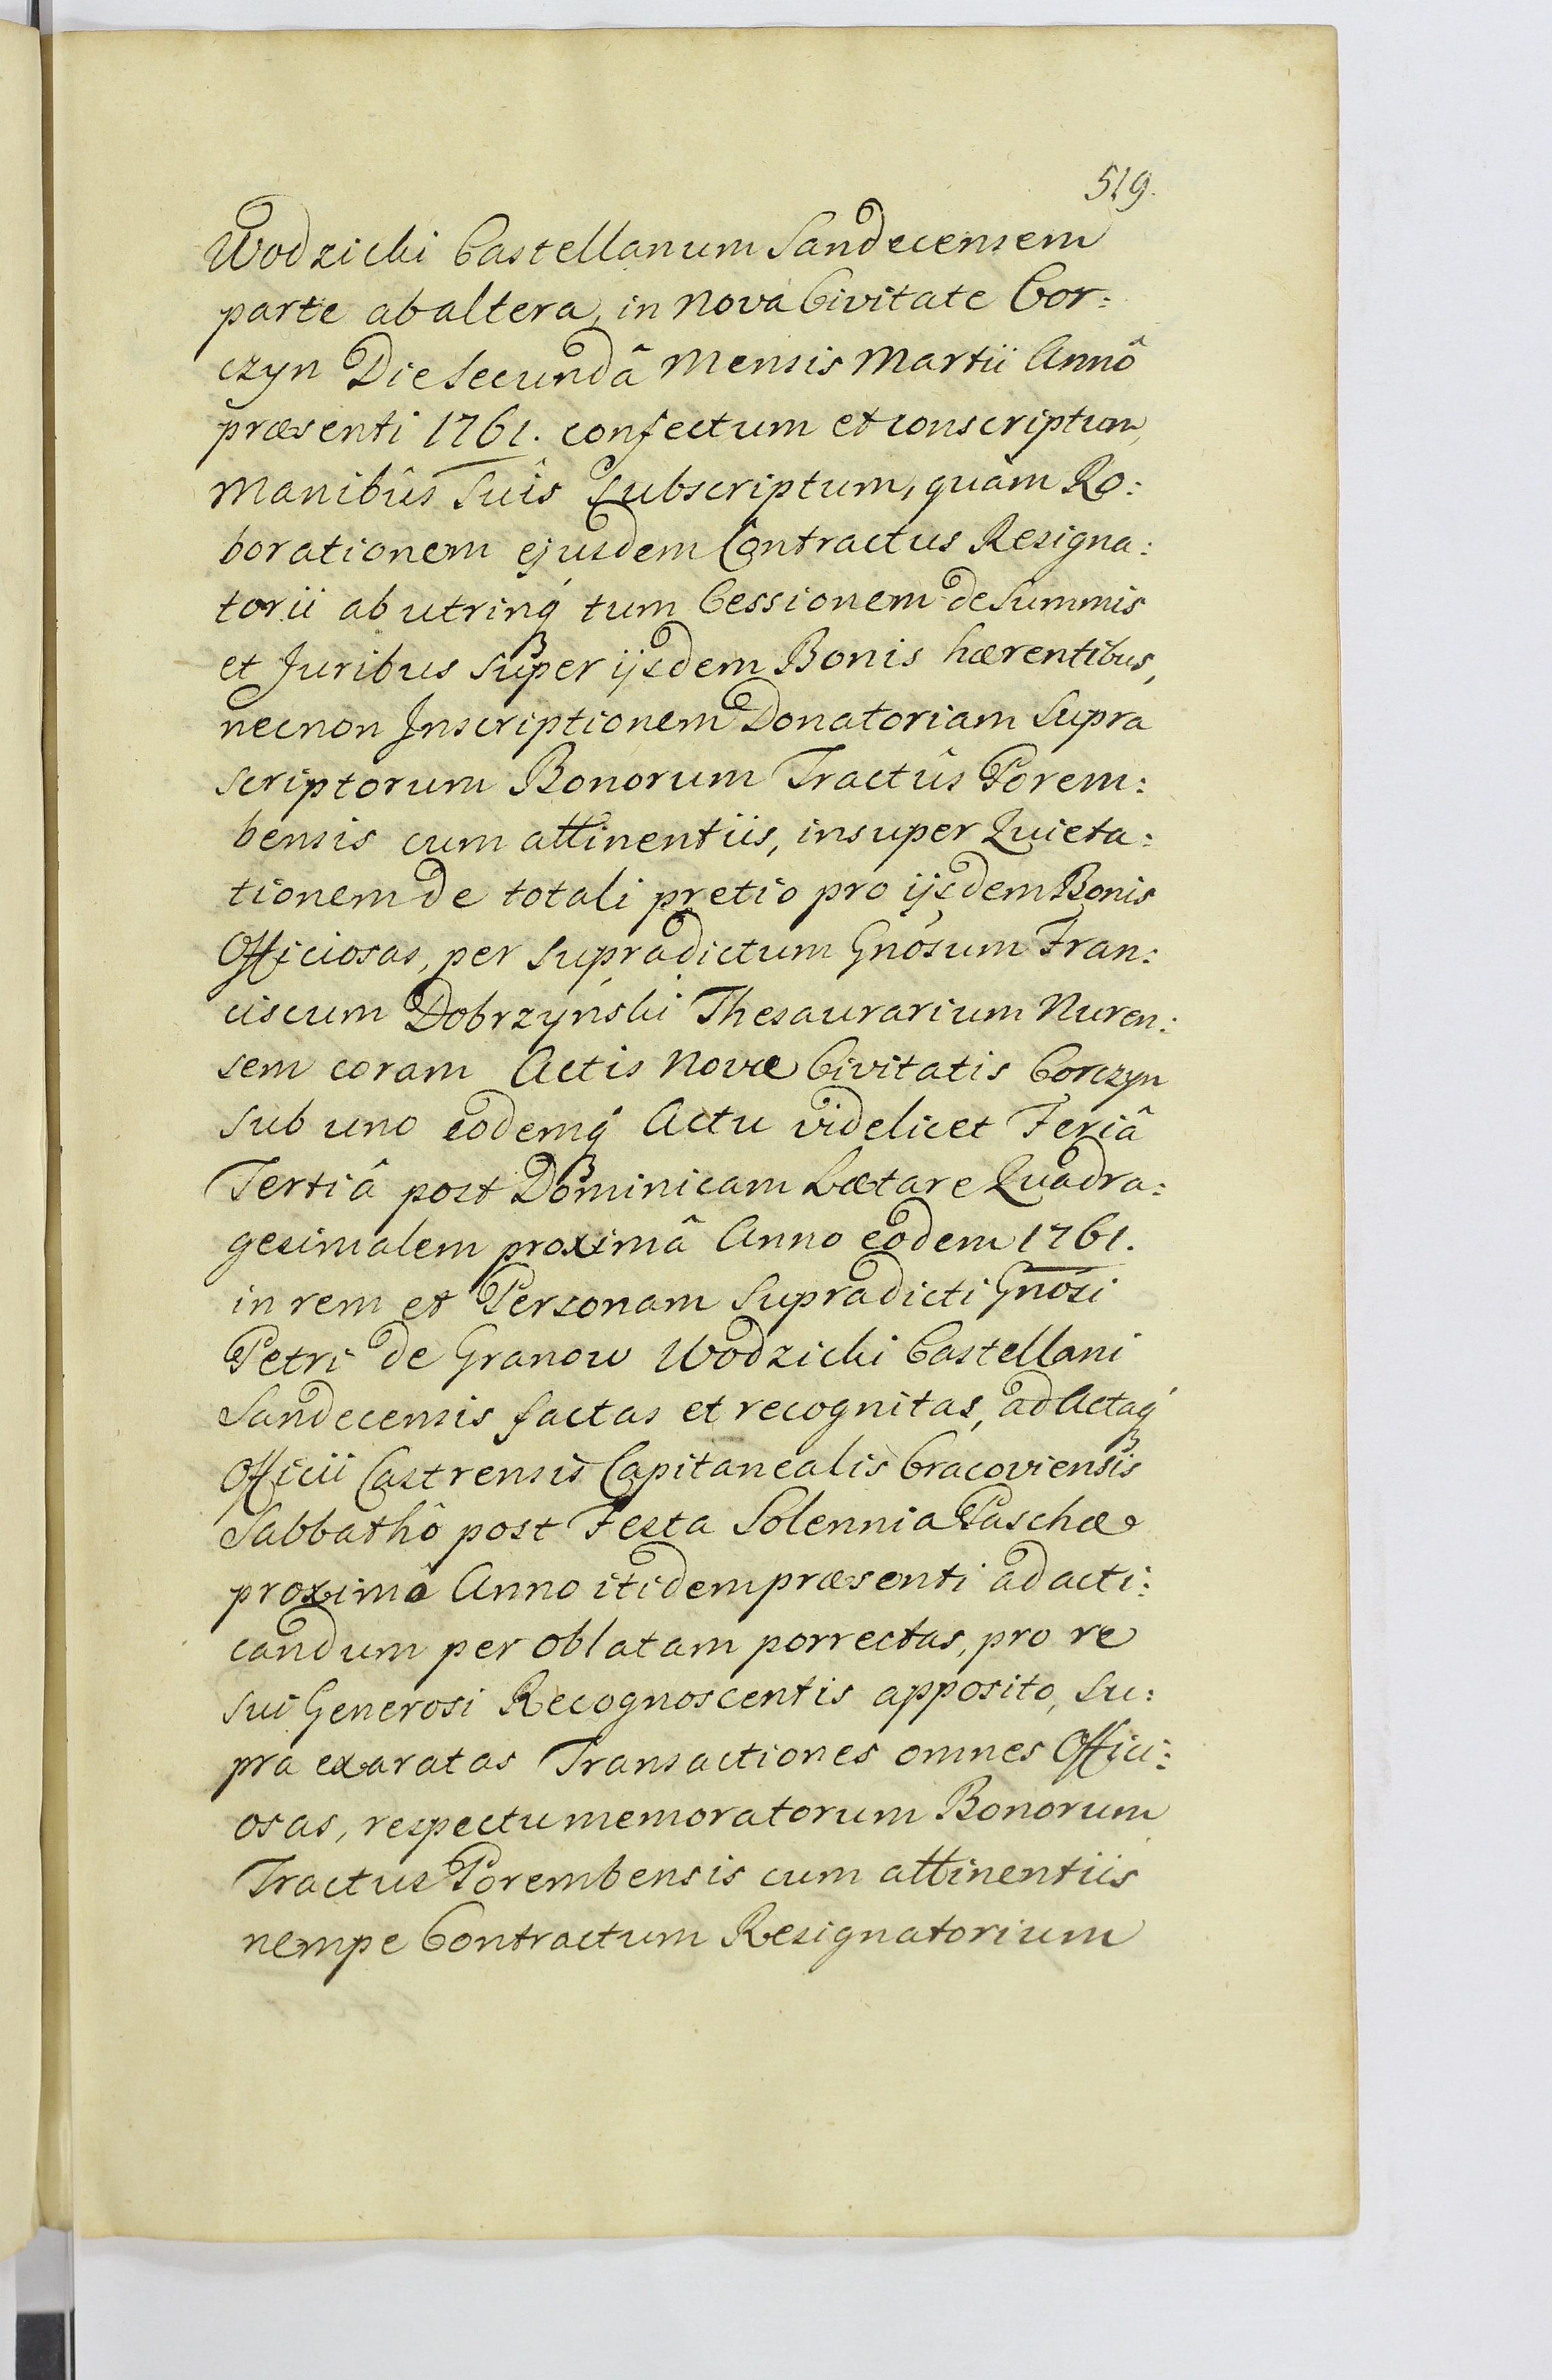 519.
Wodzicki Castellanum Sandecensem
parte ab altera, in Nova Civitate Cor:
czyn Die Secundâ Mensis Martii Annô
præsenti 1761. confectum et conscriptum,
Manibûs Suîs Subscriptum, quàm Ro:
borationem ejusdem Contractûs Resigna:
torii ab utrinq́ tum Cessionem de Summis
et Juribus super ijsdem Bonis hærentibus,
necnon Jnscriptionem Donatoriam Supra
scriptorum Bonorum Tractûs Porem:
bensis cum attinentiis, insuper Quieta:
tionem de totali pretio pro ijsdem Bonis
Officiosas, per supradictum Gnõsum Fran:
ciscum Dobrzyński Thesaurarium Nuren:
sem coram Actis Novæ Civitatis Corczyn
sub uno eodemq́ Actu videlicet Feriâ
Tertiâ post Dominicam Lætare Quadra:
gesimalem proximâ Anno eodem 1761.
in rem et Personam Supradicti Gnõsi
Petri de Granow Wodzicki Castellani
Sandecensis factas et recognitas, ad Actaq́
Officii Castrensis Capitanealis Cracoviensis
Sabbathô post Festa Solennia Paschæ
proximô Anno itidem præsenti ad acti:
candum per oblatam porrectas, pro re
sui Generosi Recognoscentis apposito, su:
pra exaratas Transactiones omnes Offici:
osas, respectu memoratorum Bonorum
Tractus Porembensis cum attinentiis
nempe Contractum Resignatorium